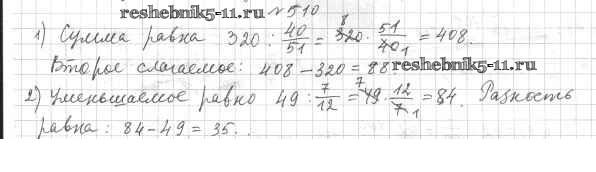 reshebnik5-11.ru № 510
1) Сумма равна 320 : 40/51 = 320 8 · 51/40 1 = 408.
Второе слагаемое: 408 – 320 = 88. reshebnik5-11.ru
2) Уменьшаемое равно 49 : 7/12 = 49 7 · 12/7 1 = 84. Разность
равна: 84 – 49 = 35.